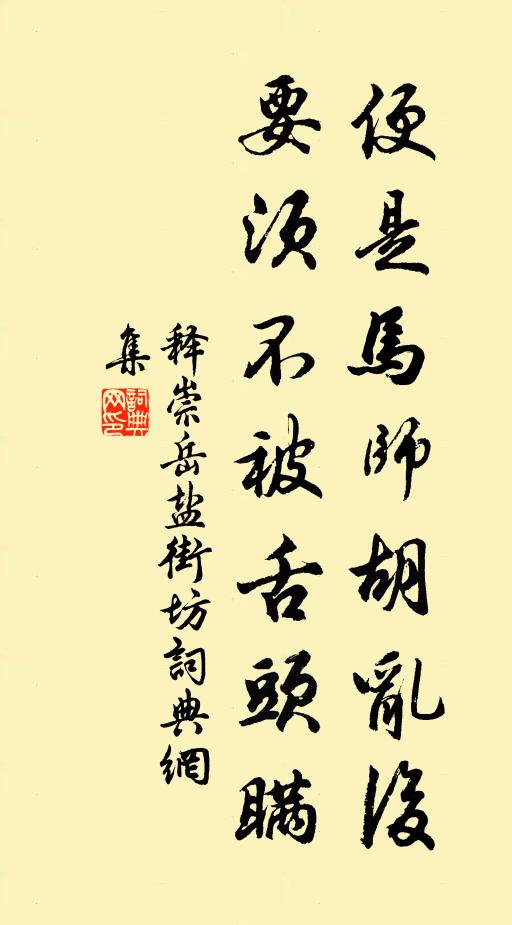 便是馬師胡亂後
要須不被舌頭瞞
释崇岳盐街坊詞典網
集
詞典网印